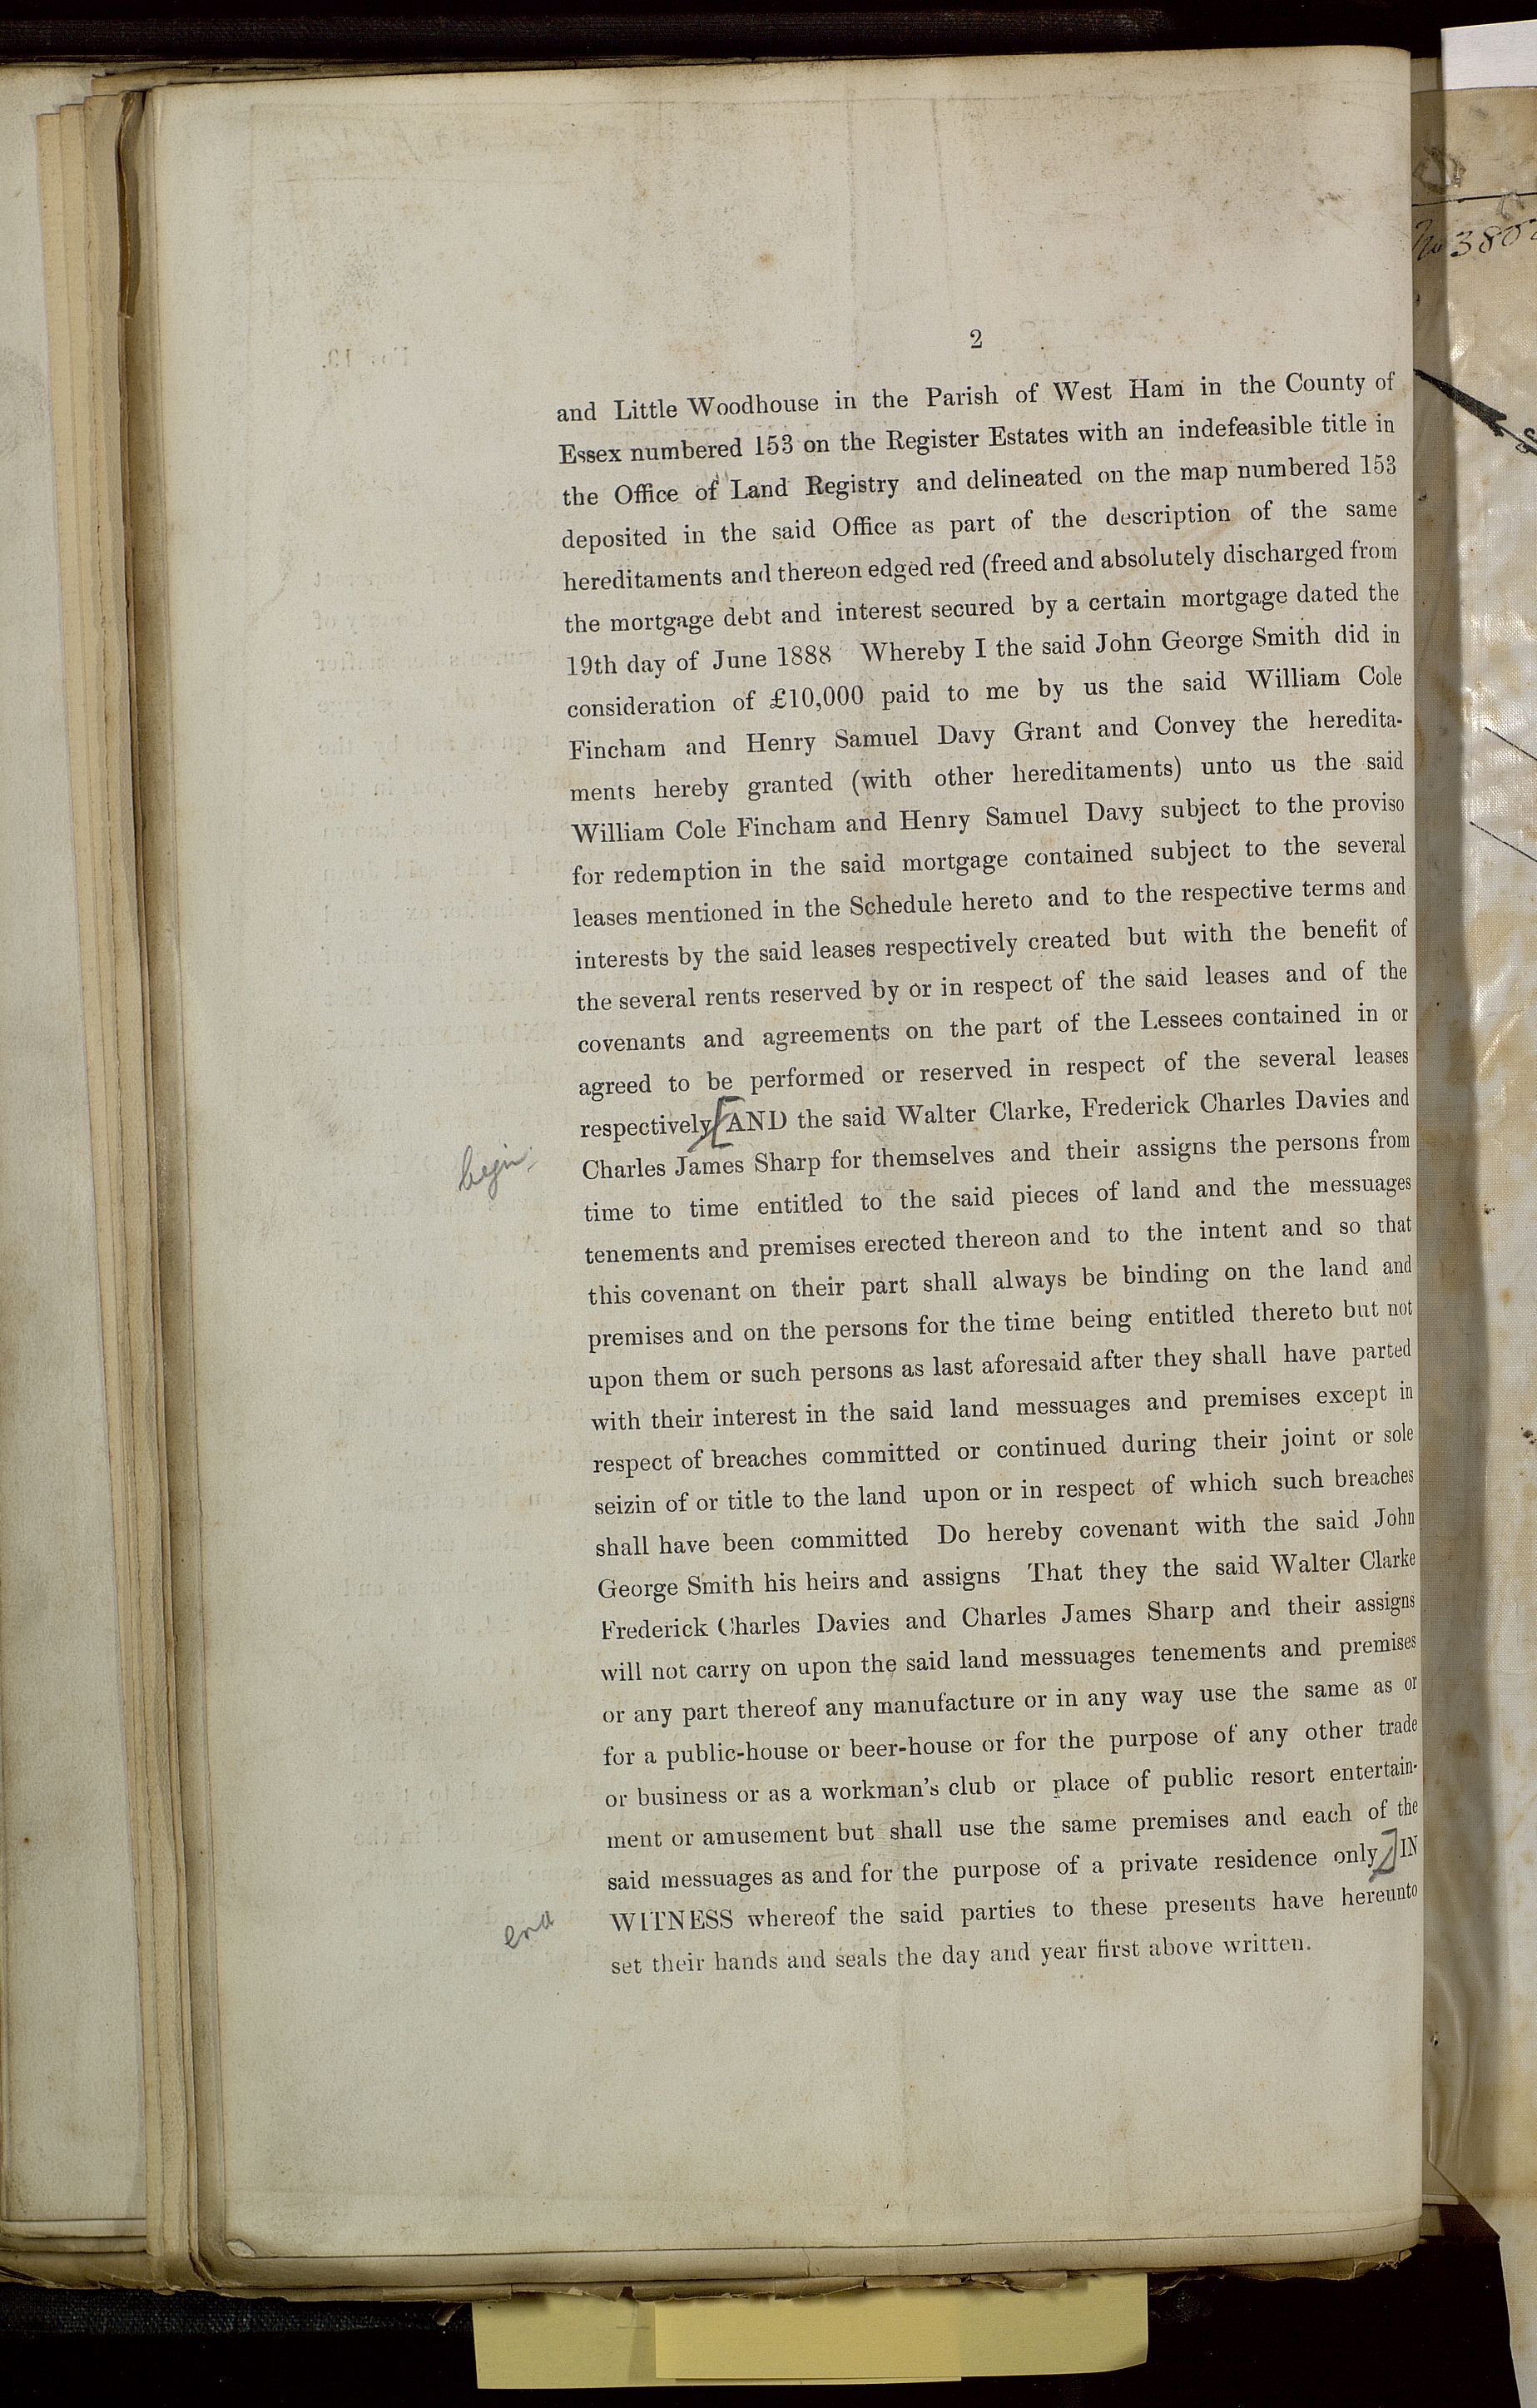 2
and Little Woodhouse in the Parish of West Ham in the County of
Essex numbered 153 on the Register Estates with an indefeasible title in
the Office of Land Registry and delineated on the map numbered 153
deposited in the said Office as part of the description of the same
hereditaments and thereon edged red (freed and absolutely discharged from
the mortgage debt and interest secured by a certain mortgage dated the
19th day of June 1888 Whereby I the said John George Smith did in
consideration of £10,000 paid to me by us the said William Cole
Fincham and Henry Samuel Davy Grant and Convey the heredita-
ments hereby granted (with other hereditaments) unto us the said
William Cole Fincham and Henry Samuel Davy subject to the proviso
for redemption in the said mortgage contained subject to the several
leases mentioned in the Schedule hereto and to the respective terms and
interests by the said leases respectively created but with the benefit of
the several rents reserved by or in respect of the said leases and of the
covenants and agreements on the part of the Lessees contained in or
agreed to be performed or reserved in respect of the several leases
respectively [AND the said Walter Clarke, Frederick Charles Davies and
begin
Charles James Sharp for themselves and their assigns the persons from
time to time entitled to the said pieces of land and the messuages
tenements and premises erected thereon and to the intent and so that
this covenant on their part shall always be binding on the land and
premises and on the persons for the time being entitled thereto but not
upon them or such persons as last aforesaid after they shall have parted
with their interest in the said land messuages and premises except in
respect of breaches committed or continued during their joint or sole
seizin of or title to the land upon or in respect of which such breaches
shall have been committed Do hereby covenant with the said John
George Smith his heirs and assigns That they the said Walter Clarke
Frederick Charles Davies and Charles James Sharp and their assigns
will not carry on upon the said land messuages tenements and premises
or any part thereof any manufacture or in any way use the same as or
for a public-house or beer-house or for the purpose of any other trade
or business or as a workman's club or place of public resort entertain-
ment or amusement but shall use the same premises and each of the
said messuages as and for the purpose of a private residence only] IN
end
WITNESS whereof the said parties to these presents have hereunto
set their hands and seals the day and year first above written.